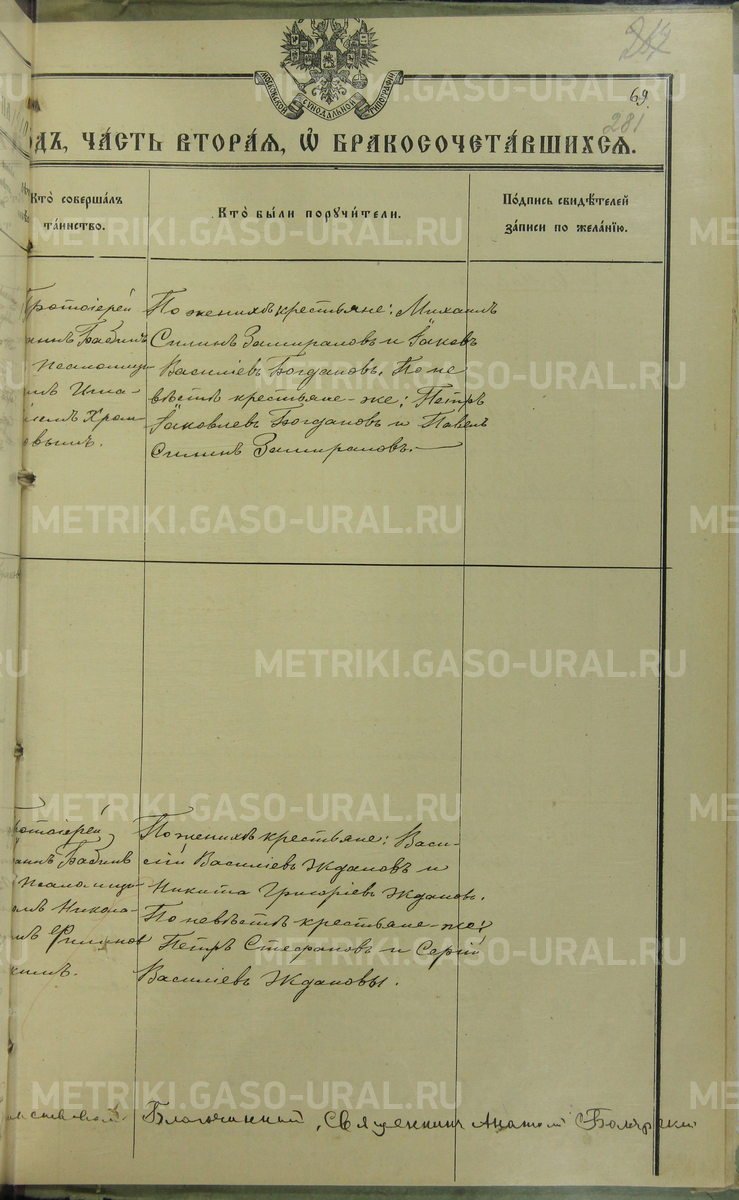 МОСКОВСКОЙ СѴНОДАЛЬНОЙ ТИПОГРАФІИ
69.
281
ОДЪ, ЧА́СТЬ ВТОРА́Я, Ѽ БРАКОСОЧЕТА́ВШИХСЯ.
Кто̀ соверша́лъ
та́инство.
Кто̀ бы́ли поручи́тели.
По́дпись свидѣ́телей
за́писи по жела́нїю.
Протоіерей
аннъ Бабинъ
Псаломщи-
мъ Игна-
іемъ Хром-
овымъ.
По женихѣ крестьяне: Михаилъ
Силинъ Замираловъ и Яковъ
Василіевъ Богдановъ. По не
вѣстѣ крестьяне-же: Петръ
Яковлевъ Богдановъ и Павелъ
Силинъ Замираловъ.
Протоіерей
аннъ Бабинъ
Псаломщи-
омъ Никола-
мъ Филинов
скимъ.
По женихѣ крестьяне: Васи-
лій Василіевъ Ждановъ и
Никита Григоріевъ Ждановъ.
По невѣстѣ крестьяне-же:
Петръ Стефановъ и Сергій
Василіевъ Ждановы.
Благочинный, Священникъ Анатолій
METRIKI.GASO-URAL.RU